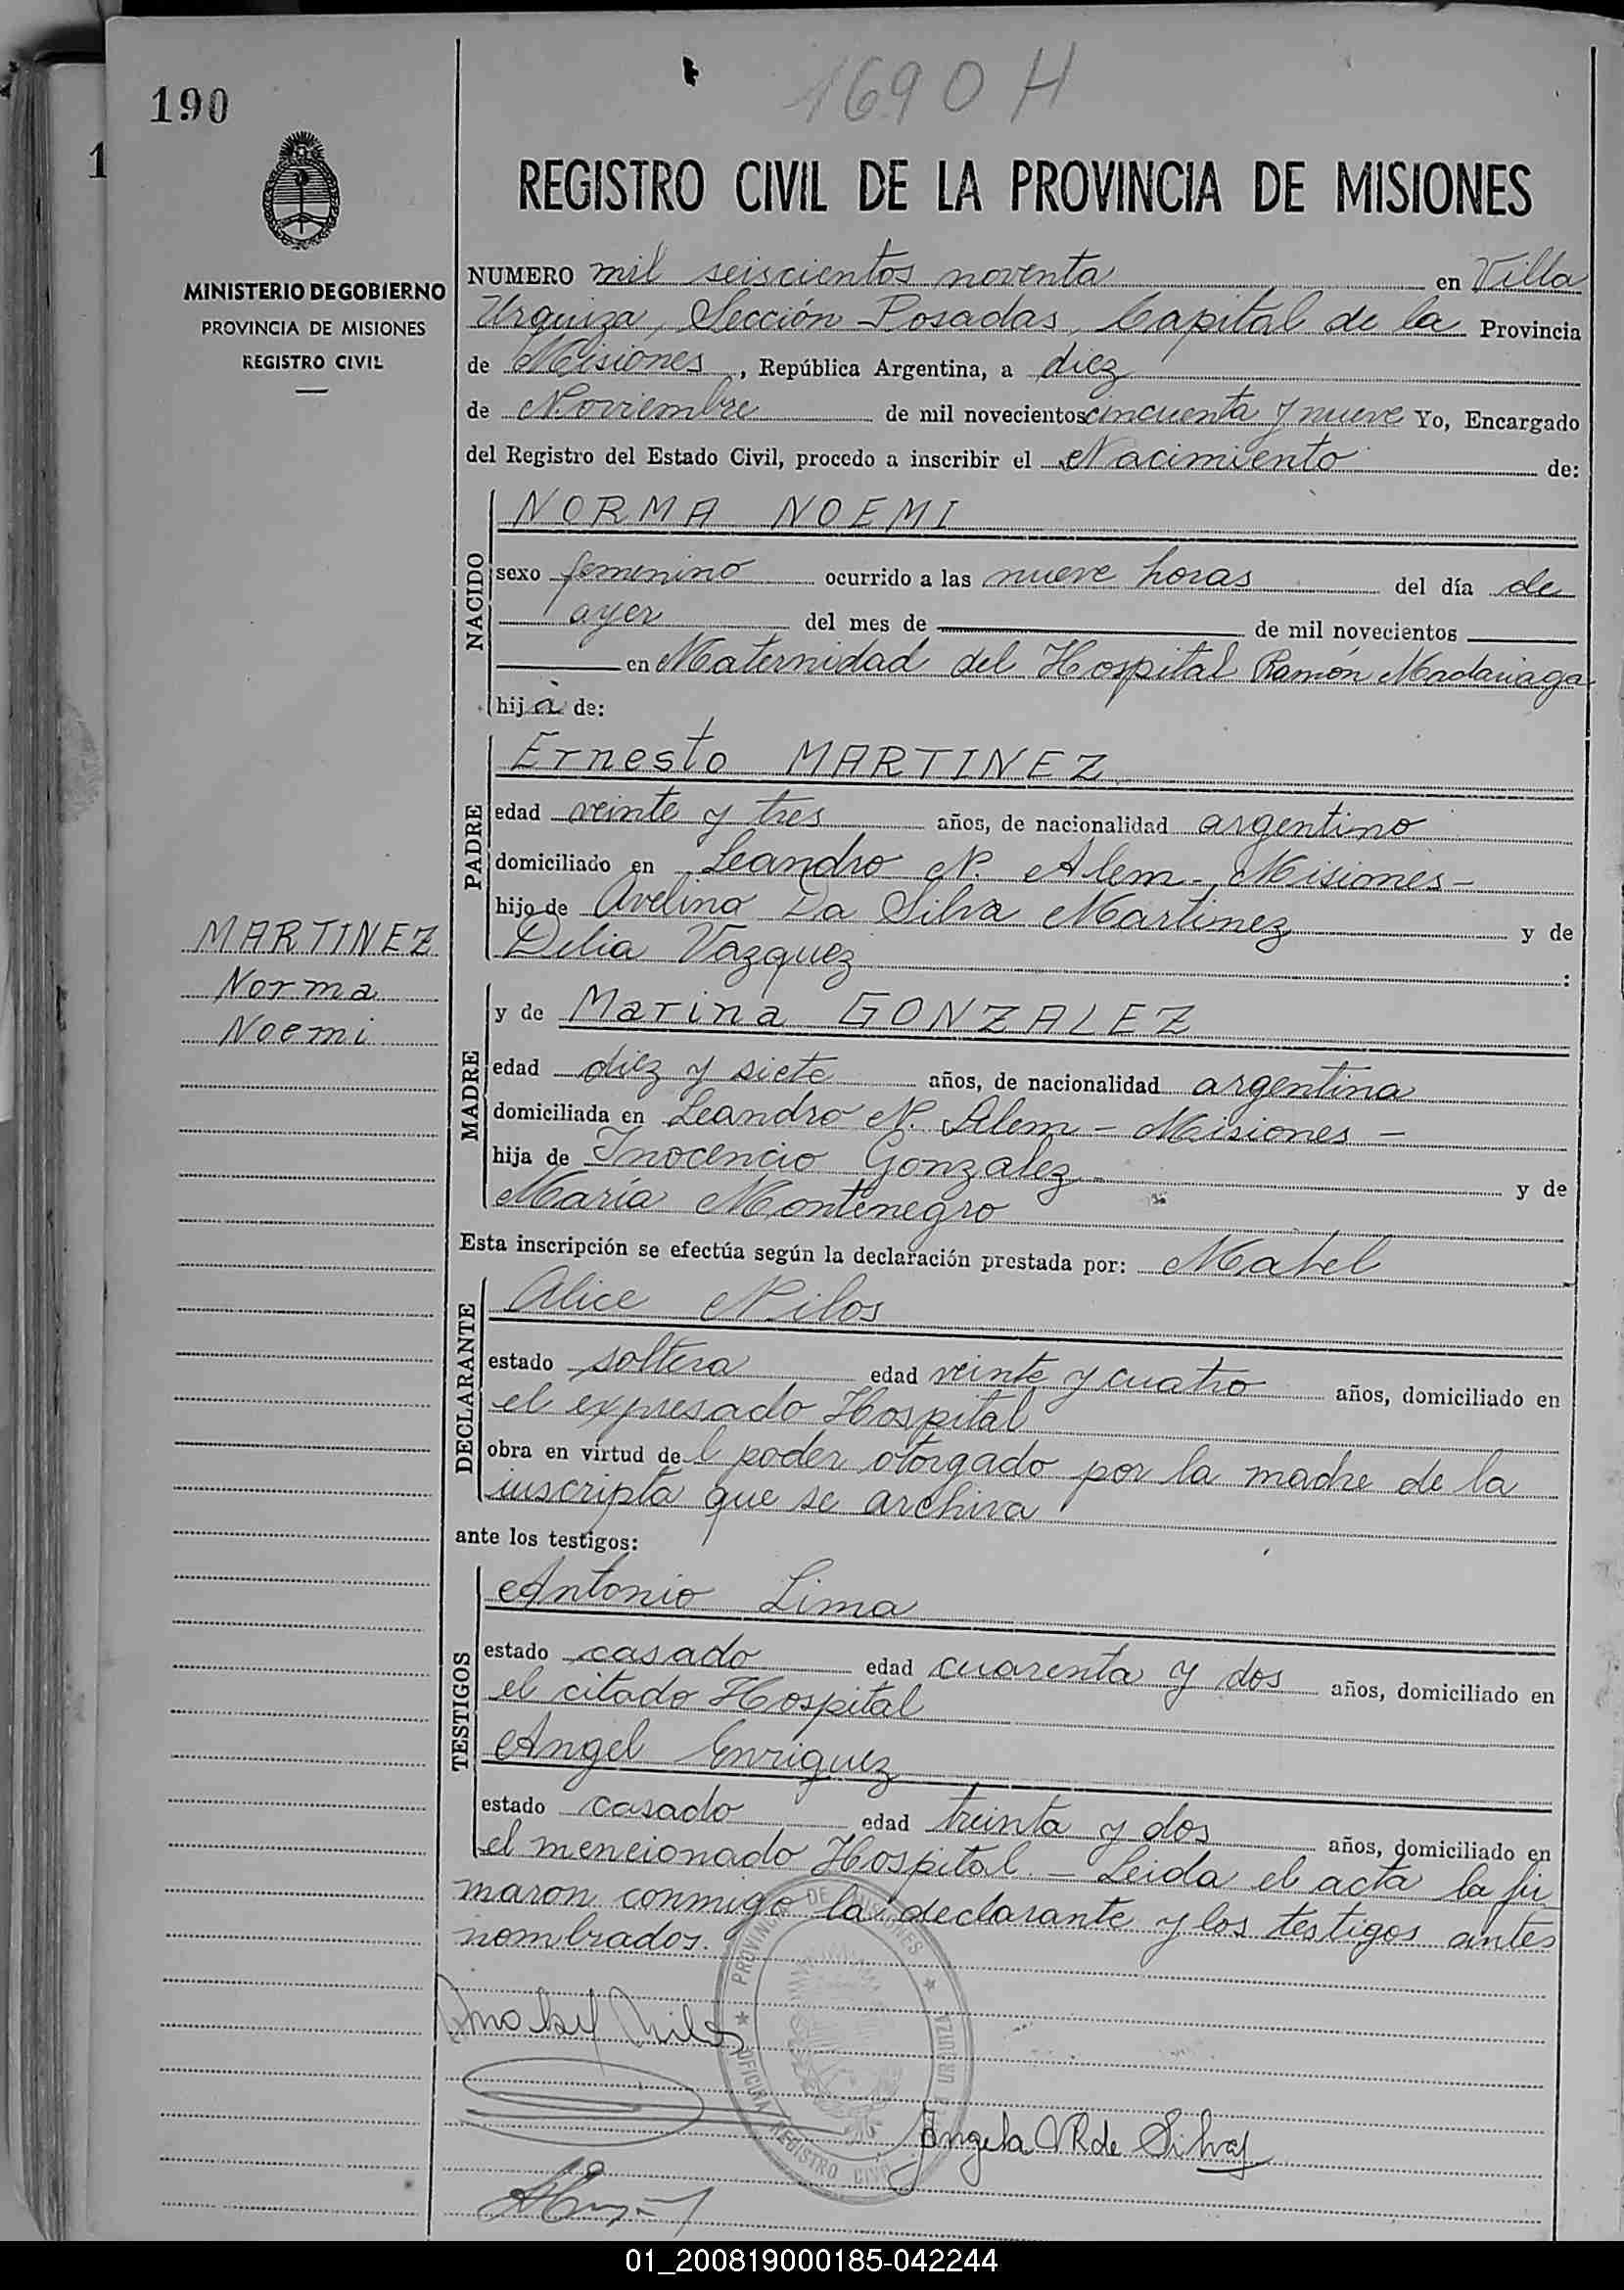 1690 H
190
1
MINISTERIO DE GOBIERNO
PROVINCIA DE MISIONES
REGISTRO CIVIL
REGISTRO CIVIL DE LA PROVINCIA DE MISIONES
NUMERO mil seiscientos noventa en Villa
Urquiza, Sección Posadas, Capital de la Provincia
de Misiones, República Argentina, a diez
de Noviembre de mil novecientos cincuenta y nueve Yo, Encargado
del Registro del Estado Civil, procedo a inscribir el Nacimiento de:
NACIDO
NORMA NOEMI
sexo femenino ocurrido a las nueve horas del día de
ayer del mes de de mil novecientos
en Maternidad del Hospital Ramón Madariaga
hija de:
PADRE
Ernesto MARTINEZ
edad veinte y tres años, de nacionalidad argentino
domiciliado en Leandro N. Alem - Misiones -
hijo de Avelino Da Silva Martinez y de
Delia Vazquez :
MARTINEZ
Norma
Noemi
MADRE
y de Marina GONZALEZ
edad diez y siete años, de nacionalidad argentina
domiciliada en Leandro N. Alem - Misiones -
hija de Inocencio Gonzalez y de
María Montenegro
Esta inscripción se efectúa según la declaración prestada por: Mabel
DECLARANTE
Alice Nilos
estado soltera edad veinte y cuatro años, domiciliado en
el expresado Hospital
obra en virtud del poder otorgado por la madre de la
inscripta que se archiva
ante los testigos:
TESTIGOS
Antonio Lima
estado casado edad cuarenta y dos años, domiciliado en
el citado Hospital
Angel Enriquez
estado casado edad treinta y dos años, domiciliado en
el mencionado Hospital. - Leida el acta la fir
maron conmigo la declarante y los testigos antes
nombrados.
PROVINCIA DE MISIONES
OFICINA REGISTRO CIVIL
Nilos
Angela R de Silva
01_200819000185-042244